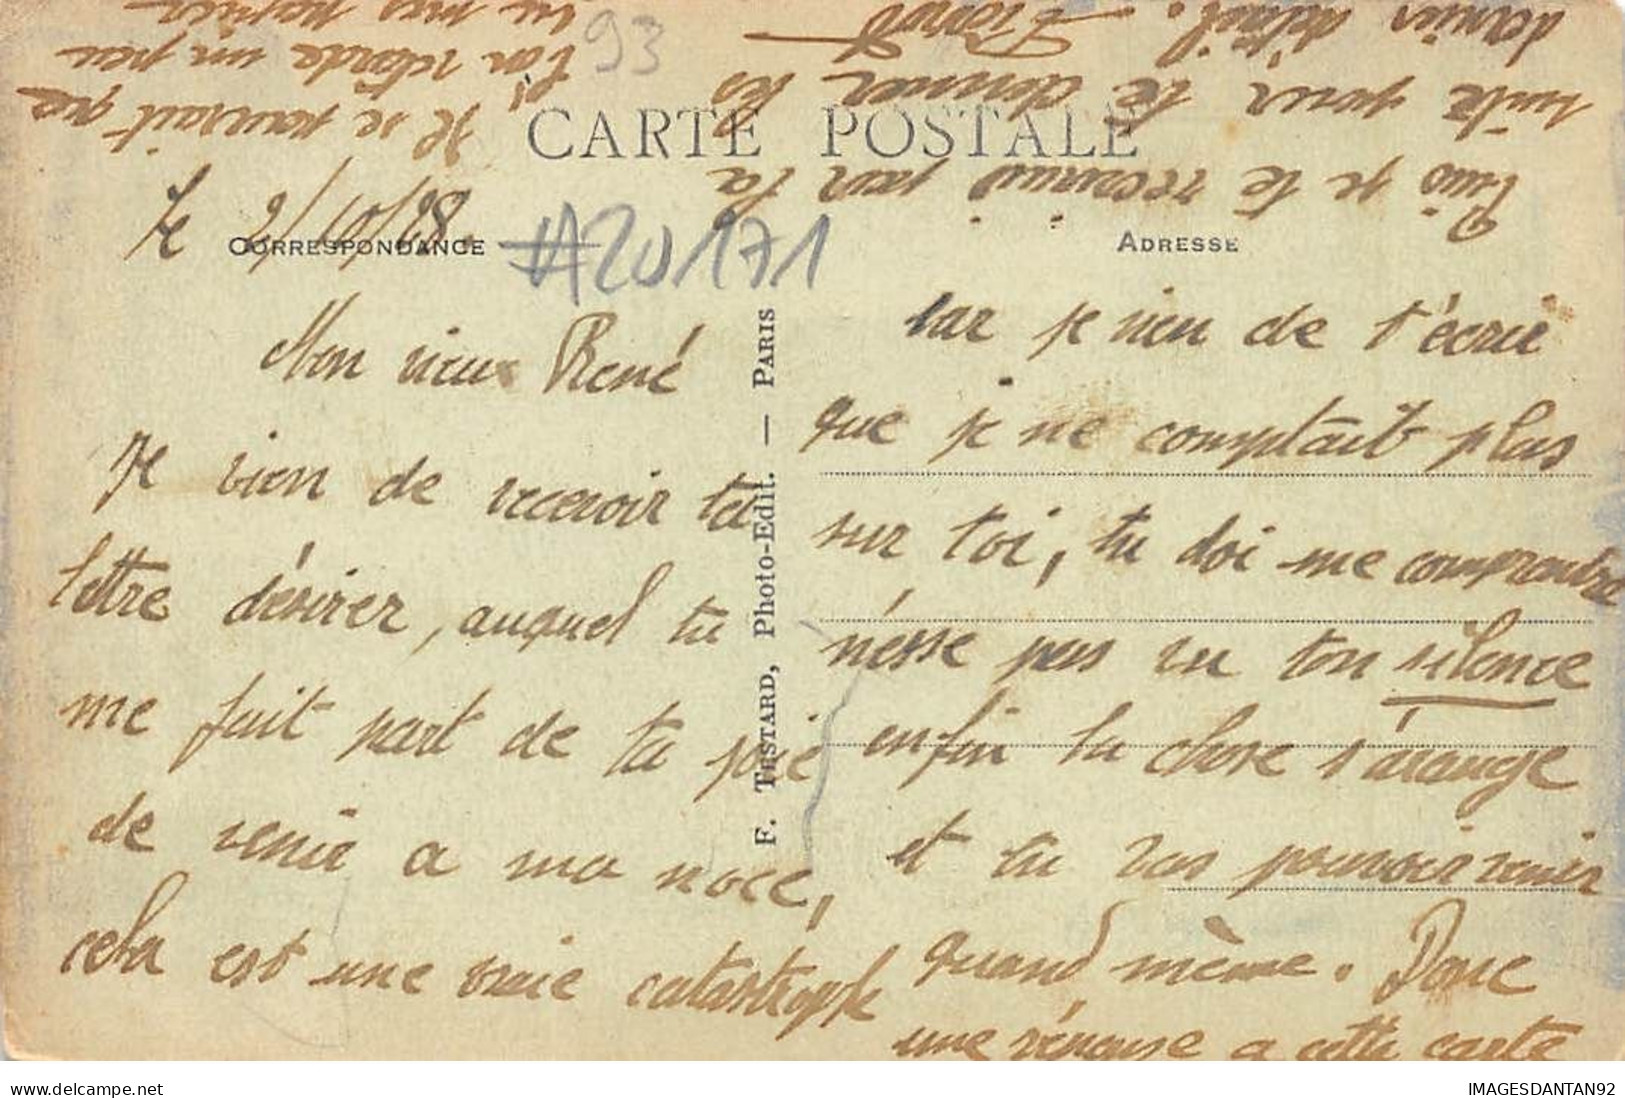 93
CARTE POSTALE
le 2/10/28.
CORRESPONDANCE
#A20171
ADRESSE
Mon vieux René
Je vien de recevoir ta
lettre désirer, auquel tu
me fait part de ta joie
de venir a ma noce,
cela est une vraie catastrophe
F. TESTARD, Photo-Edit. — PARIS
car je vien de t'écrir
que je ne comptait plus
sur toi, tu doi me comprendre
n'esse pas vu ton silence
enfin la chose s'arange
et tu vas pouvoir venir
quand même. Donc
une réponse a cette carte
Puis je te reconnais par ta
suite pour te donner les
dernier détail.
Il se pourrait que
l'on retarde un peu
vu mes papier
IMAGESDANTAN92
www.delcampe.net